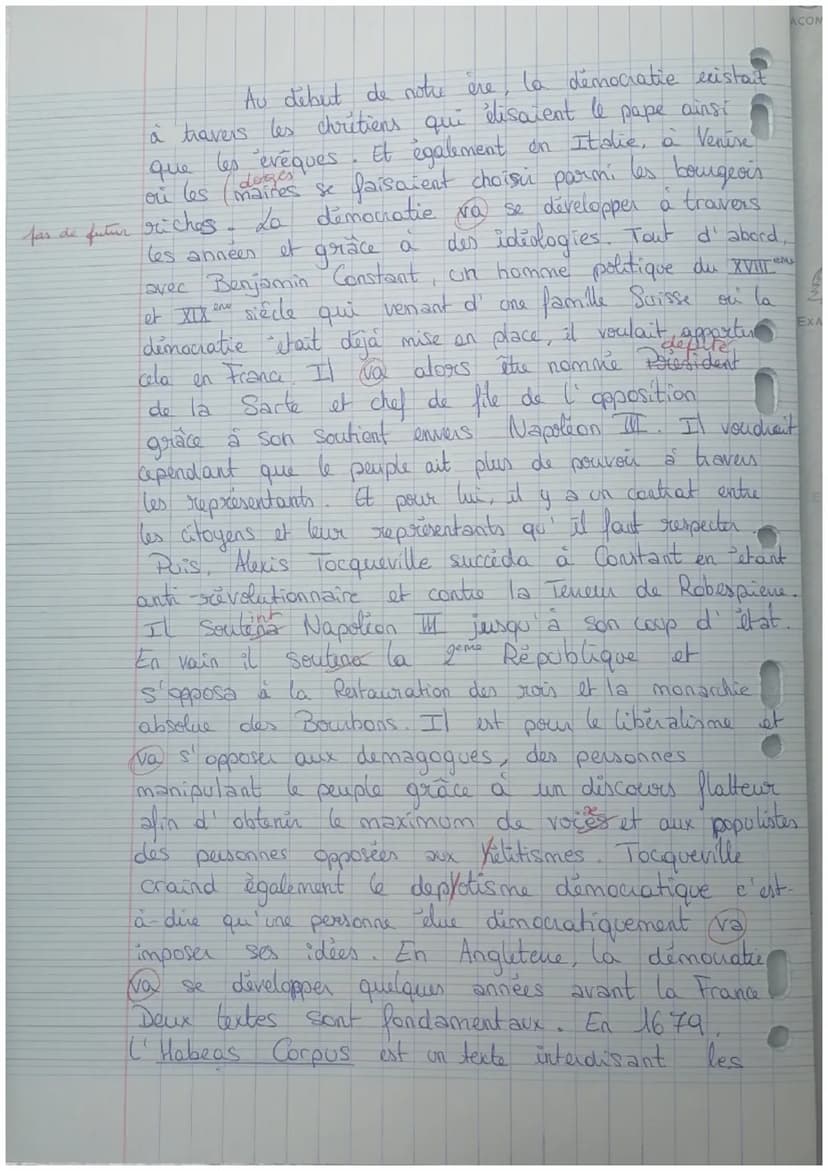 ACON
Au début de notre ère, la démocratie existait
à travers les chrétiens qui élisaient le pape ainsi
que les évêques. Et également en Italie, à Venise
doges
où les (maires se faisaient choisir parmi les bourgeois
pas de futur riches. La démocratie va se développer à travers
les années et grâce à des idéologies. Tout d'abord,
avec Benjamin Constant, un homme politique du XVIII ème
et XIX ème siècle qui venant d'une famille Suisse où la
EXA
démocratie était déjà mise en place, il voulait apporter
député
cela en France. Il va alors être nommé Président
de la Sarte et chef de file de l'opposition
grâce à son soutient envers Napoléon III. Il voudrait
cependant que le peuple ait plus de pouvoir à travers
les représentants. Et pour lui, il y a un contrat entre
les citoyens et leur représentants qu'il faut respecter.
Puis, Alexis Tocqueville succéda à Constant en étant
anti-révolutionnaire et contre la Terreur de Robespierre.
int
Il soutena Napoléon III jusqu'à son coup d'état.
En vain il soutena la 2ème République et
s'opposa à la Restauration des rois et la monarchie
absolue des Bourbons. Il est pour le libéralisme et
va s'opposer aux demagogues, des personnes
manipulant le peuple grâce à un discours flatteur
x
afin d'obtenir le maximum de voies et aux populistes
des personnes opposées aux élitismes. Tocqueville
craind également le despotisme démocratique c'est-
à-dire qu'une personne élue démocratiquement va
imposer ses idées. En Angleterre, la démocratie
va se développer quelques années avant la France.
Deux textes sont fondamentaux. En 1679,
l'Habeas Corpus est un texte interdisant les